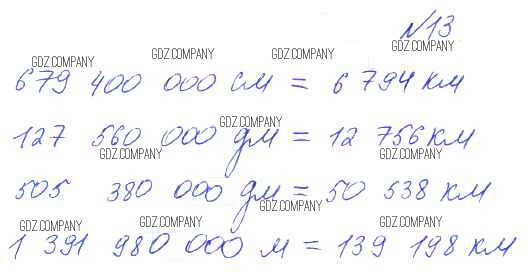 №13
GDZ.COMPANY GDZ.COMPANY GDZ.COMPANY GDZ.COMPANY
679 400 000 см = 6 794 км
GDZ.COMPANY
127 560 000 дм = 12 756 км
GDZ.COMPANY GDZ.COMPANY
505 380 000 дм = 50 538 км
GDZ.COMPANY
GDZ.COMPANY GDZ.COMPANY GDZ.COMPANY
1 391 980 000 м = 139 198 км